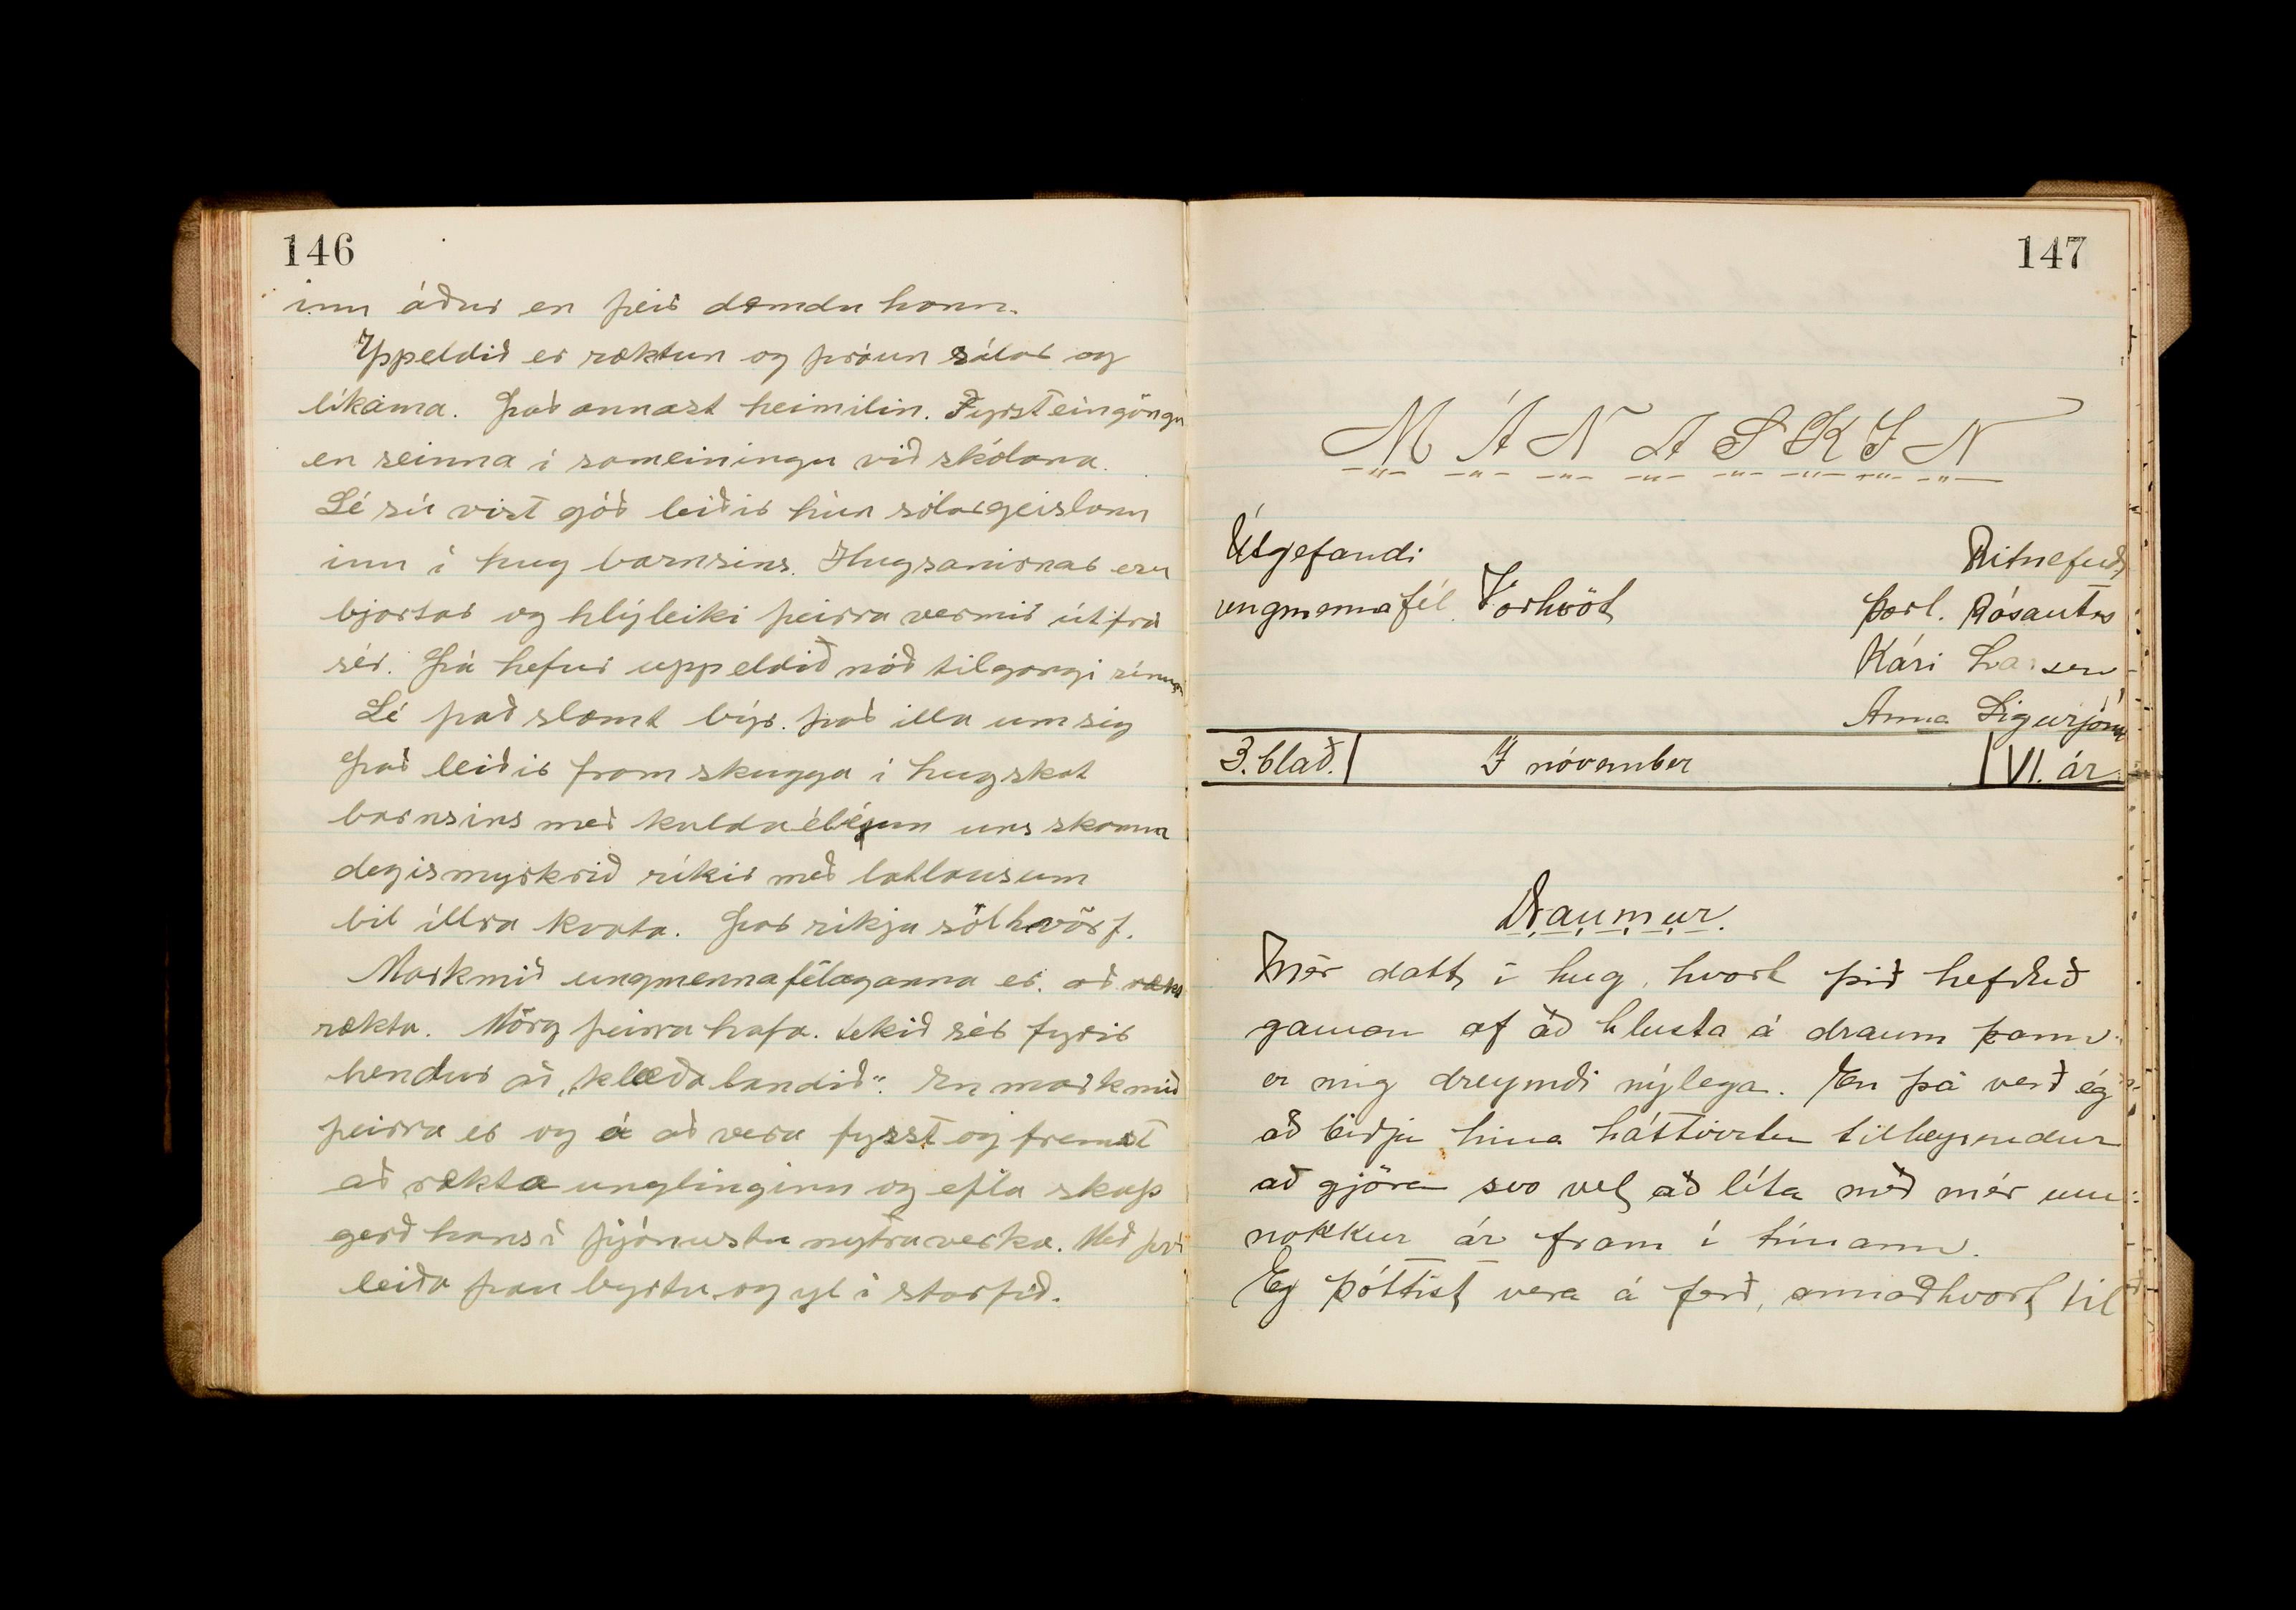 146
inn áður en þeir dæmdu hann.
Uppeldið er ræktun og þróun sálar og
líkama. Það annast heimilin. Fyrst eingöngu
en seinna í sameiningu við skólana.
Sé sú vist góð leiðir hún sólargeislann
inn í hug barnsins. Hugsanirnar eru
bjartar og hlýleiki þeirra vermir út frá
sér. Þá hefur uppeldið náð tilgangi sínum
Sé það slæmt býr það illa um sig
Það leiðir fram skugga í hugskot
barnsins með kulda uns skamm
degismyrkrið ríkir með látlausum
bil illra kvata. Þar ríkja sólhvörf.
Markmið ungmennafélaganna er að rækt
rækta. Mörg þeirra hafa tekið sér fyrir
hendur að „klæða landið". En markmið
þeirra er og á að vera fyrst og fremst
að rækta unglinginn og efla skap
gerð hans í þjónustu nýtra verka. Með því
leiða þau byrtu og yl í starfið.
147
MÁNASKIN
Útgefandi
ungmennafél. Vorhvöt
Ritnefnd,
Þorl. Rósantss
Kári Larsen
Anna Sigurjóns
3. blað. I nóvember VI. ár.
Draumur.
Mér datt í hug, hvort þið hefðuð
gaman af að hlusta á draum þann
er mig dreymdi nýlega. En þá verð ég
að biðja hina háttvirtu tilheyrendur
að gjöra svo vel að líta með mér um
nokkur ár fram í tímann.
Eg þóttist vera á ferð, annaðhvort til